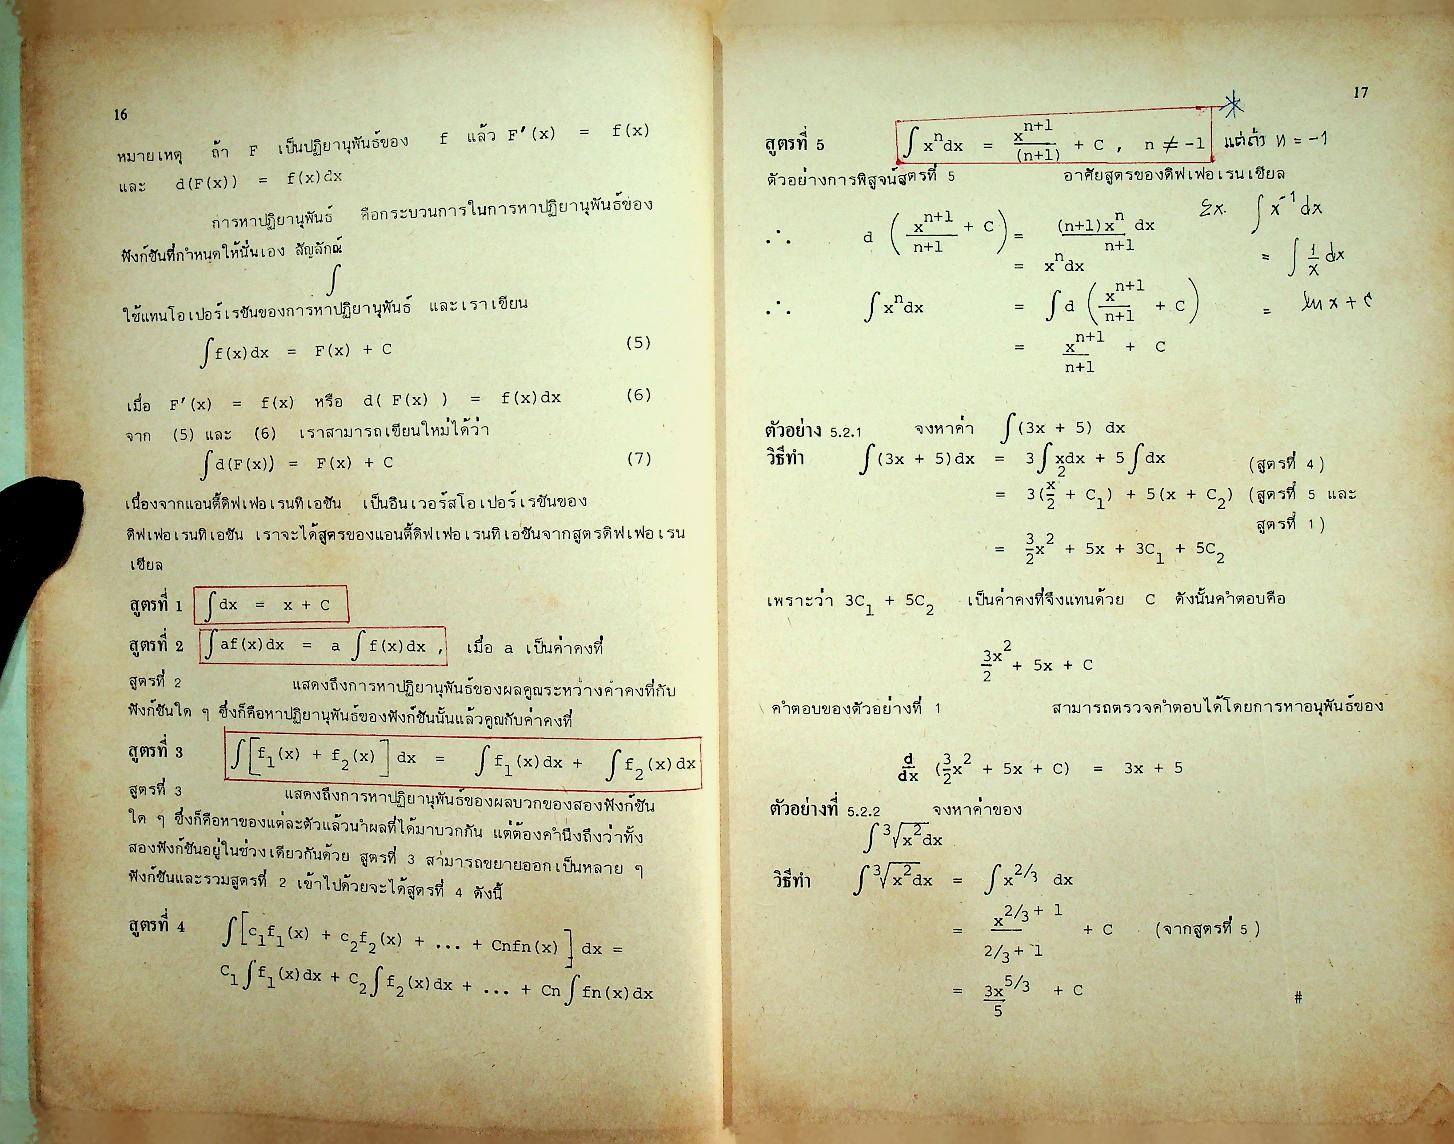 16
หมายเหตุ ถ้า F เป็นปฏิยานุพันธ์ของ f แล้ว F'(x) = f(x)
และ d(F(x)) = f(x)dx
การหาปฏิยานุพันธ์ คือกระบวนการในการหาปฏิยานุพันธ์ของ
ฟังก์ชันที่กำหนดให้นั่นเอง สัญลักณ์
∫
ใช้แทนโอเปอร์เรชันของการหาปฏิยานุพันธ์ และเราเขียน
∫f(x)dx = F(x) + C (5)
เมื่อ F'(x) = f(x) หรือ d( F(x) ) = f(x)dx (6)
จาก (5) และ (6) เราสามารถเขียนใหม่ได้ว่า
∫d(F(x)) = F(x) + C (7)
เนื่องจากแอนตี้ดิฟเฟอเรนทิเอชัน เป็นอินเวอร์สโอเปอร์เรชันของ
ดิฟเฟอเรนทิเอชัน เราจะได้สูตรของแอนตี้ดิฟเฟอเรนทิเอชันจากสูตรดิฟเฟอเรน
เชียล
สูตรที่ 1 ∫dx = x + C
สูตรที่ 2 ∫af(x)dx = a ∫f(x)dx , เมื่อ a เป็นค่าคงที่
สูตรที่ 2 แสดงถึงการหาปฏิยานุพันธ์ของผลคูณระหว่างค่าคงที่กับ
ฟังก์ชันใด ๆ ซึ่งก็คือหาปฏิยานุพันธ์ของฟังก์ชันนั้นแล้วคูณกับค่าคงที่
สูตรที่ 3 ∫[f₁(x) + f₂(x)] dx = ∫f₁(x)dx + ∫f₂(x)dx
สูตรที่ 3 แสดงถึงการหาปฏิยานุพันธ์ของผลบวกของสองฟังก์ชัน
ใด ๆ ซึ่งก็คือหาของแต่ละตัวแล้วนำผลที่ได้มาบวกกัน แต่ต้องคำนึงถึงว่าทั้ง
สองฟังก์ชันอยู่ในช่วงเดียวกันด้วย สูตรที่ 3 สามารถขยายออกเป็นหลาย ๆ
ฟังก์ชันและรวมสูตรที่ 2 เข้าไปด้วยจะได้สูตรที่ 4 ดังนี้
สูตรที่ 4 ∫[c₁f₁(x) + c₂f₂(x) + ... + Cnfn(x)] dx =
C₁∫f₁(x)dx + C₂∫f₂(x)dx + ... + Cn∫fn(x)dx
17
สูตรที่ 5 ∫xⁿdx = xⁿ⁺¹/(n+1) + C , n ≠ -1 แต่ถ้า n = -1
ตัวอย่างการพิสูจน์สูตรที่ 5 อาศัยสูตรของดิฟเฟอเรนเชียล
∴ d (xⁿ⁺¹/n+1 + C) = (n+1)xⁿ/n+1 dx Ex. ∫x⁻¹dx
= xⁿdx = ∫1/x dx
∴ ∫xⁿdx = ∫d (xⁿ⁺¹/n+1 + C) = ln x + C
= xⁿ⁺¹/n+1 + C
ตัวอย่าง 5.2.1 จงหาค่า ∫(3x + 5) dx
วิธีทำ ∫(3x + 5)dx = 3∫xdx + 5∫dx (สูตรที่ 4)
= 3(x²/2 + C₁) + 5(x + C₂) (สูตรที่ 5 และ
สูตรที่ 1)
= 3/2x² + 5x + 3C₁ + 5C₂
เพราะว่า 3C₁ + 5C₂ เป็นค่าคงที่จึงแทนด้วย C ดังนั้นคำตอบคือ
3x²/2 + 5x + C
คำตอบของตัวอย่างที่ 1 สามารถตรวจคำตอบได้โดยการหาอนุพันธ์ของ
d/dx (3/2x² + 5x + C) = 3x + 5
ตัวอย่างที่ 5.2.2 จงหาค่าของ
∫³√x²dx
วิธีทำ ∫³√x²dx = ∫x^2/3 dx
= x^(2/3 + 1)/(2/3 + 1) + C (จากสูตรที่ 5)
= 3x^5/3/5 + C #